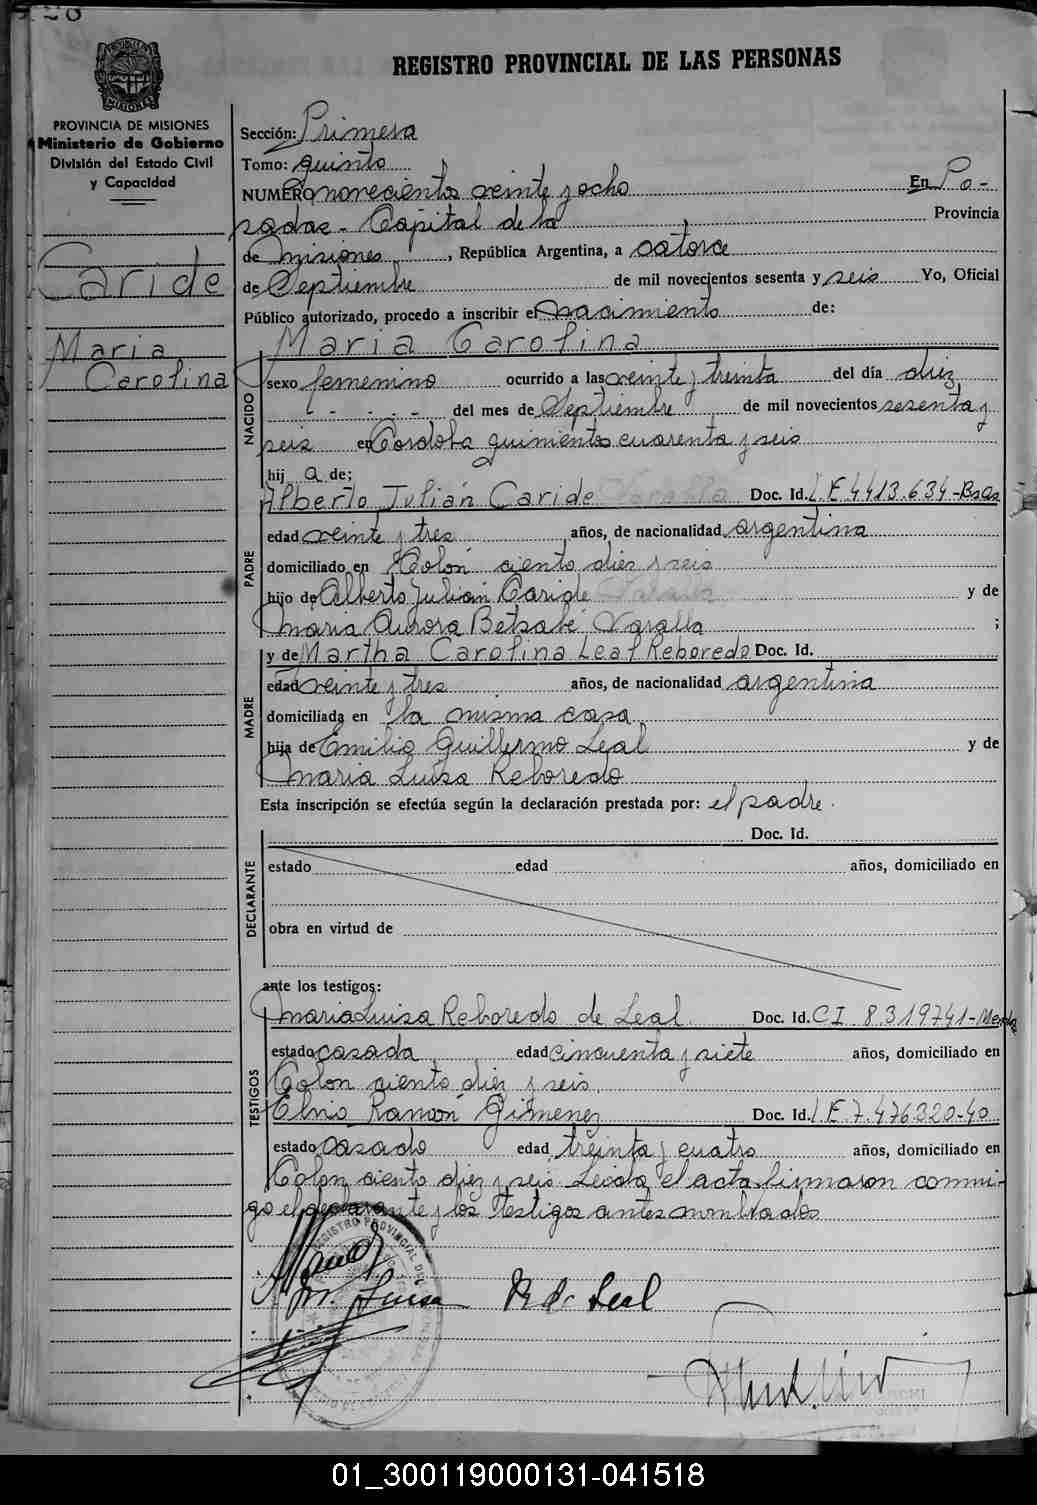 REGISTRO PROVINCIAL DE LAS PERSONAS
PROVINCIA DE MISIONES
Ministerio de Gobierno
División del Estado Civil
y Capacidad
Caride
Maria
Carolina
Sección: Primera
Tomo: quinto
NUMERO novecientos veinte y ocho En Po-
sadas - Capital de la Provincia
de Misiones, República Argentina, a catorce
de Septiembre de mil novecientos sesenta y seis Yo, Oficial
Público autorizado, procedo a inscribir el nacimiento de:
Maria Carolina
NACIDO
sexo femenino ocurrido a las veinte y treinta del día diez
- - - - - del mes de Septiembre de mil novecientos sesenta y
seis en Cordoba quinientos cuarenta y seis
hij a de:
PADRE
Alberto Julián Caride Doc. Id. L.E 4413.634-BsAs
edad veinte y tres años, de nacionalidad argentina
domiciliado en Colón ciento diez y seis
hijo de Alberto Julián Caride y de
Maria Aurora Betsabé Varalla ;
MADRE
y de Martha Carolina Leal Reboredo Doc. Id.
edad veinte y tres años, de nacionalidad argentina
domiciliada en la misma casa
hija de Emilio Guillermo Leal y de
Maria Luisa Reboredo
Esta inscripción se efectúa según la declaración prestada por: el padre.
DECLARANTE
Doc. Id.
estado edad años, domiciliado en
obra en virtud de
ante los testigos:
TESTIGOS
Maria Luisa Reboredo de Leal Doc. Id. CI 8319741-
estado casada edad cincuenta y siete años, domiciliado en
Colon ciento diez y seis
Elvio Ramón Gimenez Doc. Id. L.E.7.476.320-40
estado casado edad treinta y cuatro años, domiciliado en
Colon ciento diez y seis Leida el acta firmaron conmi-
go el declarante y los testigos antes nombrados
M. Luisa R. de Leal
01_300119000131-041518